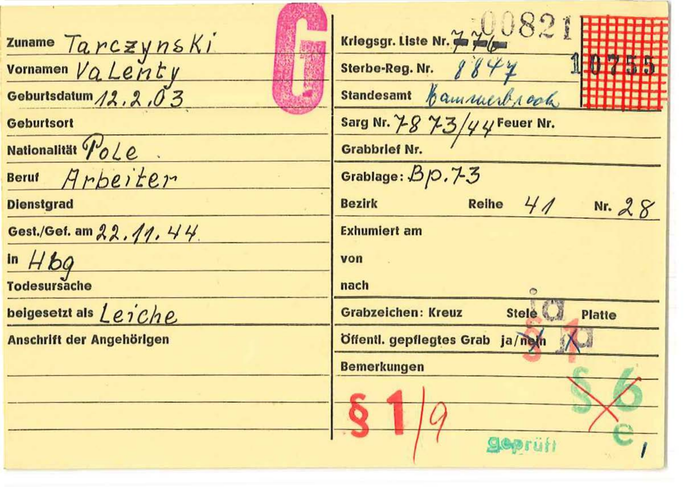 Zuname Tarczynski
Vornamen Valenty
Geburtsdatum 12.2.03
Geburtsort
Nationalität Pole
Beruf Arbeiter
Dienstgrad
Gest./Gef. am 22.11.44
in Hbg
Todesursache
beigesetzt als Leiche
Anschrift der Angehörigen
G
Kriegsgr. Liste Nr. 776 00821
Sterbe-Reg. Nr. 8847 10755
Standesamt Hammerbrook
Sarg Nr. 7873/44 Feuer Nr.
Grabbrief Nr.
Grablage: Bp.73
Bezirk Reihe 41 Nr. 28
Exhumiert am
von
nach
Grabzeichen: Kreuz Stele ja Platte
Öffentl. gepflegtes Grab ja/nein ja
§ 1
Bemerkungen
§ 6
§ 1/9
e
geprüft
1